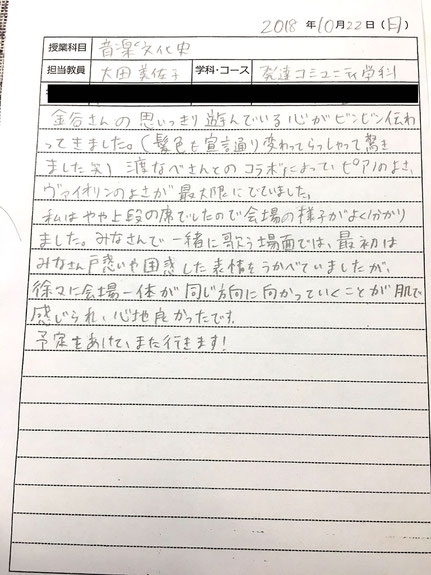 2018 年 10 月 22 日 (日)
授業科目 音楽文化史
担当教員 大田美佐子 学科・コース 発達コミュニティ学科
金谷さんの思いっきり遊んでいる心がビンビン伝わ
ってきました。(髪色も宣言通り変わってらっしゃって驚き
ました笑) 渡なべさんとのコラボによって、ピアノのよさ、
ヴァイオリンのよさが最大限にでていました。
私はやや上段の席でしたので会場の様子がよく分かり
ました。みなさんで一緒に歌う場面では、最初は
みなさん戸惑いや困惑した表情をうかべていましたが、
徐々に会場一体が同じ方向に向かっていくことが肌で
感じられ、心地良かったです。
予定をあけて、また行きます!